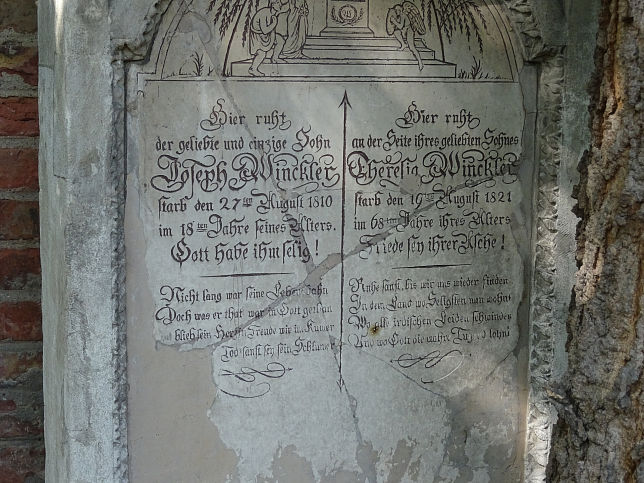 Hier ruht
der geliebte und einzige Sohn
Joseph Winckler
starb den 27ten August 1810
im 18ten Jahre seines Alters.
Gott habe ihm selig!
Nicht lang war seine Lebensbahn
Doch was er that war in Gott gethan
blieb sein Herz Freude wie im Kumer
Tod sanft sey sein Schlumer
Hier ruht
an der Seite ihres geliebten Sohnes
Theresia Winckler
starb den 19ten August 1821
im 68ten Jahre ihres Alters
Friede sey ihrer Asche!
Ruhe sanft, bis wir uns wieder finden
In dem Land wo Seligkeit man wohnt
Wo alle irdischen Leiden schwinden
Und wo Gott die wahre Tugend lohnt